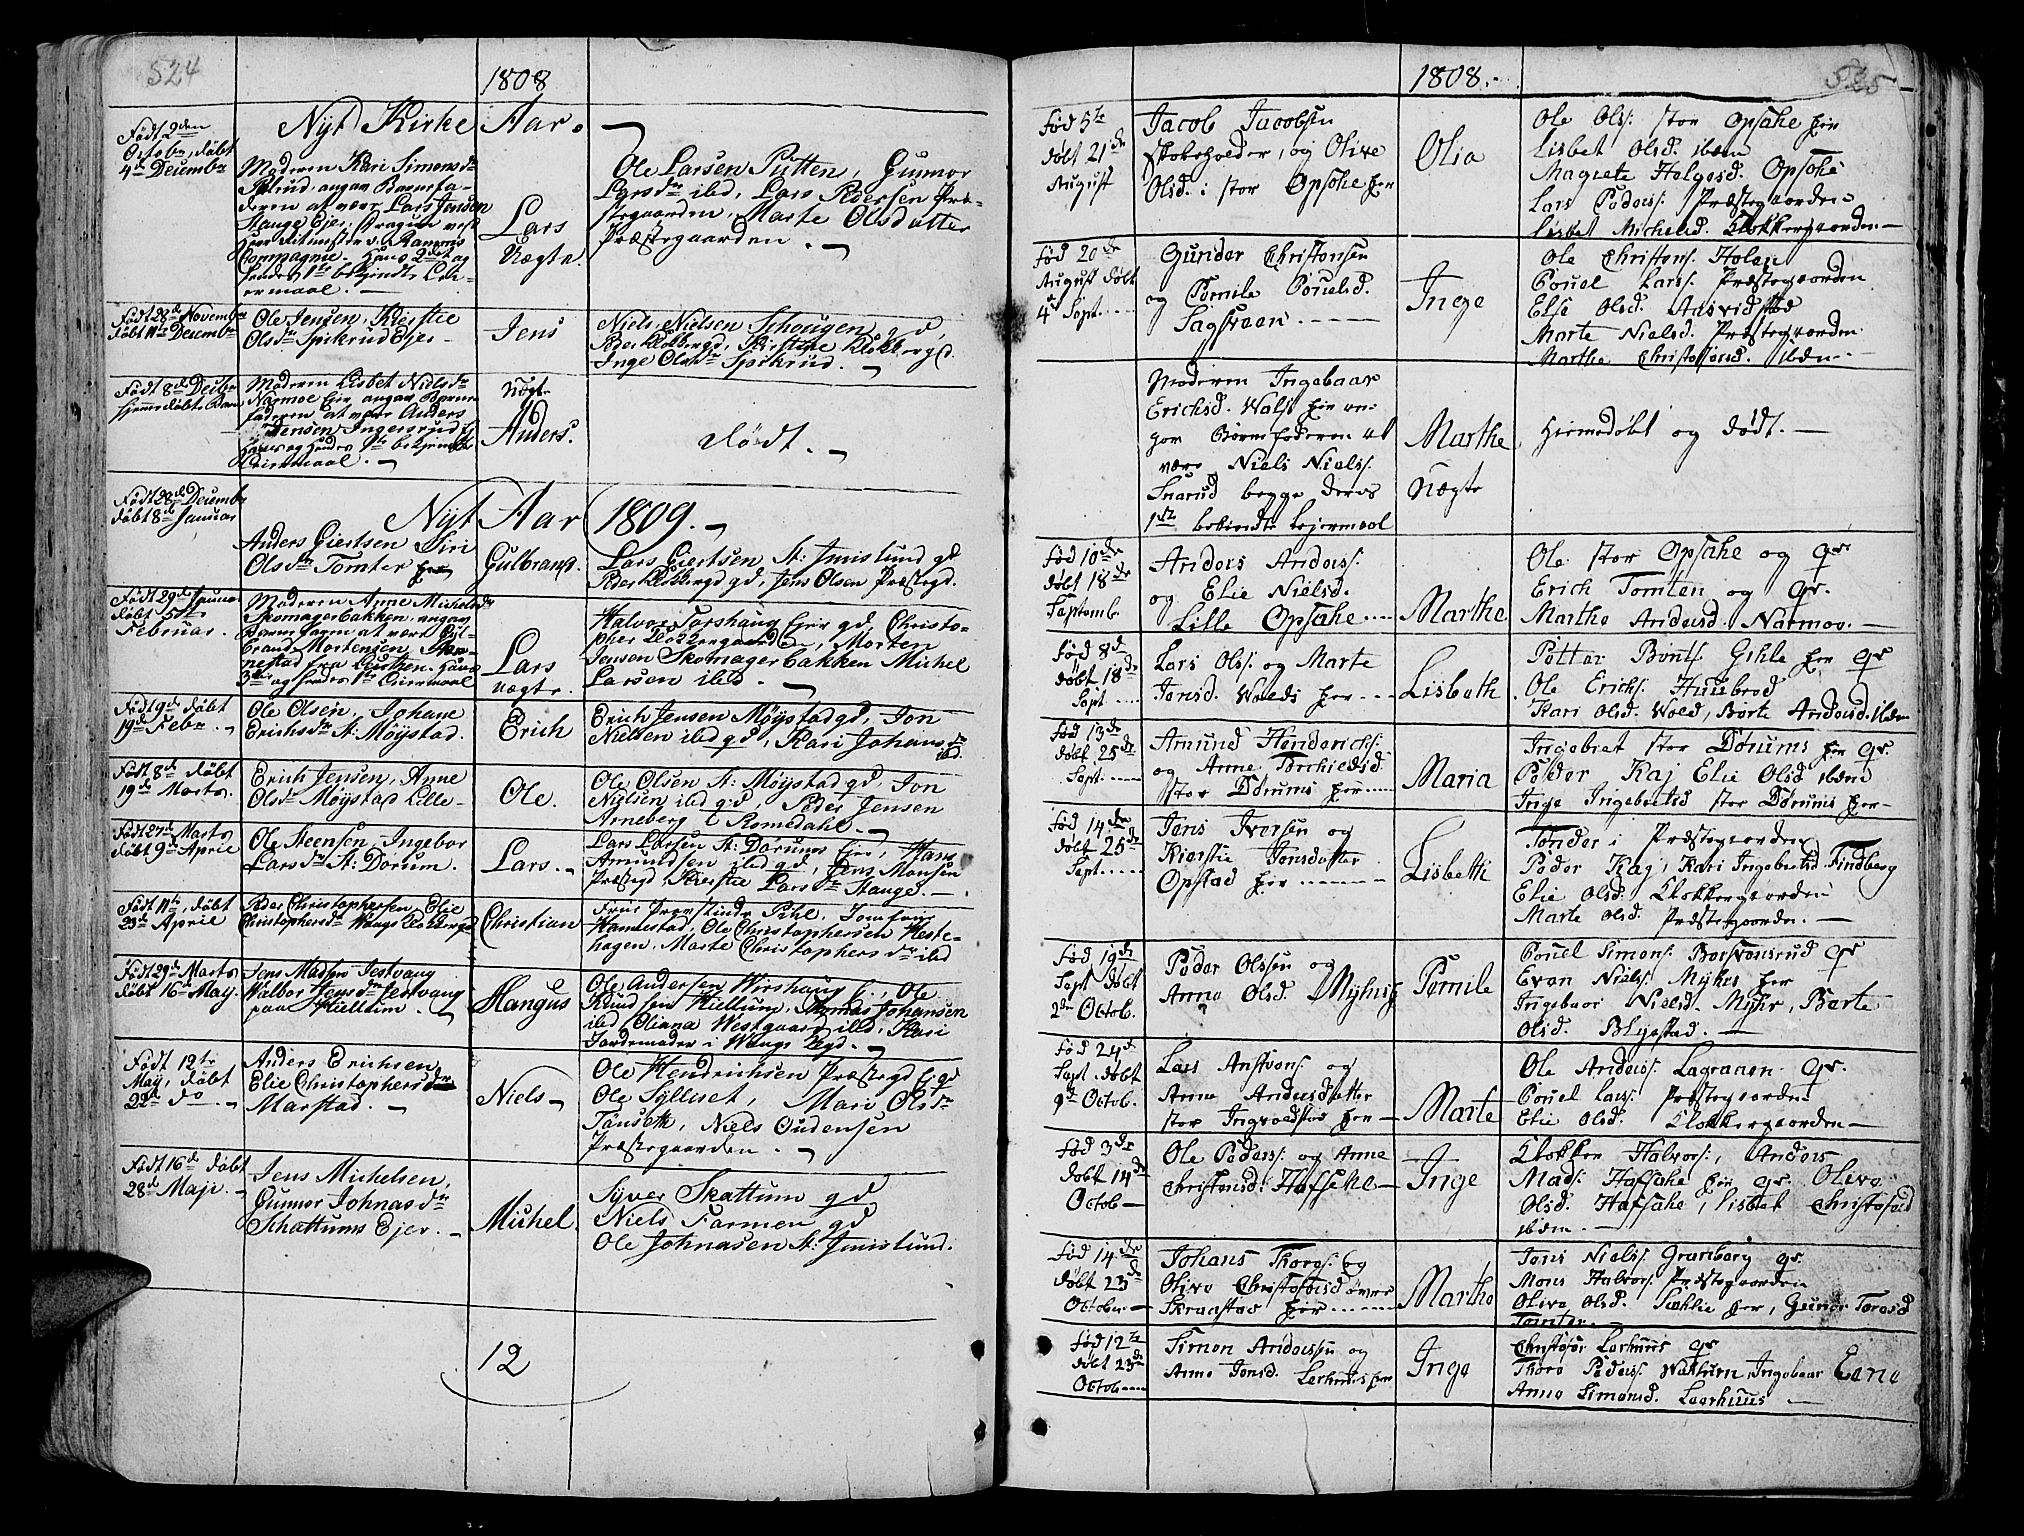 524
1808
Nyt Kirke Aar.
Født 2den
Octobr, døbt
4de Decembr
Moderen Kari Simonsdr
angav Barnefa-
deren at være Lars Jensen
Hauge Ejer, Dragun ved
Compagnie. Hans 2det og
hendes 1te bekjendte Lei-
ermaal. —
Lars
Uægte.
Ole Larsen Putten, Gunnor
Larsdr ibid, Lars Pedersen Præ-
stegaarden, Marte Olsdatter
Præstegaarden. —
Født 28d Novembr
døbt 11te Decembr
Ole Jensen, Kierstie
Olsdr Spikrud Ejer —
Jens
Niels Nielsen Schougen gd
Peder Klokkergd, Kirstine Klokkergd.
Inge Olsdr Spikrud. —
Født 8d Decbr
hjemmedøbt Barn
Moderen Lisbet Nielsdr
Narmoe Ejer, angav Barne-
faderen at være Anders
Jensen Ingersrud
Hans og Hendes 1te bekjendte
Leiermaal. —
Uægte
Anders.
Dødt. —
Nyt Aar 1809. —
Født 28d Decembr
døbt 8d Januar
Anders Giertsen Siri
Olsdr Tomter
Gulbrand.
Lars Giertsen St: Imislund gd
Peder Klokkergd gd, Jens Olsen Præstegd.
Født 29d Januar
døbt 5te
Februar.
Moderen Anne Michelsdr
Skomagerbakken, angav
Barnefaren at være Gul-
brand Mortensen
nestad fra Løiten. Hans
3die og hendes 1te Leiermaal
Lars
Uægte.
Halvor Torshaug Ejer gd, Christo-
pher Klokkergaarden, Morten
Jensen Skomagerbakken Michel
Larsen ibid. —
Født 9d døbt
19de Febr. —
Ole Olsen, Johane
Erichsdr St: Møystad.
Erich
Erich Jensen Møystad gd, Jon
Nielsen ibid gd, Kari Johansdr
ibd.
Født 8d døbt
19de Marts.
Erich Jensen, Anne
Olsdr Møystad Lille —
Ole.
Ole Olsen St: Møystad gd, Jon
Nielsen ibid gd, Peder Jensen
Arneberg i Romedahl. —
Født 27d Marts
døbt 9d April
Ole Steensen Ingebor
Larsdr St: Dorum.
Lars. —
Lars Larsen St: Dorums Ejer, Hans
Amundsen ibid gd, Jens Monsen
Præstegd, Kierstie Larsdr Hauge. —
Født 11te, døbt
23de April
Peder Christophersen, Elie
Christophersdr Wangs Klokkergd
Christian
Frue Provstinde Pihl, Jomfru
Hannestad, Ole Christophersen Heste-
hagen, Marte Christophersdr ibid
Født 29de Marts
døbt 16d May.
Jens Madsen Jestvang
Walbor Jensdr Jestvang
paa Kiellum. —
Mangus
Ole Andersen Wirshaug E. Ole
Knudsen Kiellum, Thomas Johansen
ibid Oliana Westgaard ibid, Kari
Jordemoder i Wangs Degd. —
Født 12te
May, døbt
22d do —
Anders Erichsen,
Elie Christophersdr
Marstad. —
Niels —
Ole Hendrichsen Præstegd Ej gd
Ole Sylliset, Mari Olsdr
Tønseth, Niels Oudensen
Præstegaarden. —
Født 16d døbt
28d Maji. —
Jens Michelsen,
Gunnor Johnasdr
Schattums Ejer. —
Michel.
Syver Skattum gd
Niels Farmen gd
Ole Johnasen St: Imislund.
12
1808.
525
fød 5te
døbt 21de
August
Jacob Jacobsen
Skoleholder, og Olive
Olsd. i stor Opsahe her
Olia
Ole Ols. stor Opsahe her
Lisbet Olsd. ibdm
Magrete Helgesd. Opsahe
Lars Peders. Præstegaarden
Lisbet Michelsd. Klokkergaarden —
fød 20de
August døbt
4d Sept. ...
Gunder Christensen
og Pernile Pouelsd.
Sagsveen. ——
Inge
Ole Christens. Holen
Pouel Lars. Præstegaarden
Else Olsd. Aasvidstad
Marte Nielsd. Præstegaarden
Marthe Christofersd. ibdm. —
Moderen Ingebaar
Erichsd. Wals her an-
gav Barnefaderen at
være Niels Niels.
Snarud begge deres
1ste bekiendte lejermaal
Marthe
Uægte
Hiemedøbt og Død. —
fød 10de
døbt 18de
Septemb.
Anders Anders.
og Elie Nielsd.
Lille Opsahe ....
Marthe
Ole stor Opsahe og qr
Erich Tomten og qr.
Marthe Andersd. Narmoe. —
fød 8d
døbt 18de
Sept. ...
Lars Ols. og Marte
Jensd. Wolds her ...
Lisbeth
Petter Bents. Gihle her qr
Ole Erichs. Huusbrod
Kari Olsd. Wold, Berte Andersd. ibdm
fød 13de
døbt 25de
Sept. ...
Amund Henderichs.
og Anne Torchieldsd.
Stor Dørums her ...
Maria
Ingebret stor Dørums her qr.
Peder Kaj Elie Olsd ibdm
Inge Ingebretsd stor Dørums her —
fød 14de
døbt 25de
Sept. ...
Jens Iversen og
Kierstie Jensdatter
Opstad her ———
Lisbeth
Tønder i Præstegaarden
Peder Kaj, Kari Ingebretsd Findberg
Elie Olsd. Klokkergaarden
Marte Olsd. Præstegaarden. —
fød 19de
Sept døbt
2de Octob.
Peder Olssen og
Anne Olsd. Myhrs
Pernile
Pouel Simons. Borstensrud qr
Even Niels. Myhrs her
Ingebaar Nielsd. Myhr, Berte
Olsd. Blystad. —
fød 24d
Sept. døbt
9de Octob.
Lars Anstens. og
Anne Andersdatter
stor Ingvoldstad her —
Marte
Ole Anders. Lageraaen qr.
Pouel Lars. Præstegaarden
Elie Olsd. Klokkergaarden —
fød 3de
døbt 14de
Octob —
Ole Peders. og Anne
Christensd. Hafsahe —
Inge
Klokker Halvors., Anders
Mads. Hafsahe her qr. Olive
Olsd. Hafsahe, Lisbet Christofersd
ibdm. —
fød 14de
døbt 23d
October —
Johans Thores. og
Olive Christofersd øvre
Skraastad her ———
Marthe
Jens Niels. Granberg qr.
Mons Halvors. Præstegaarden
Olive Olsd. Sæhlie her, Gunor Toresd
Tomter. —
fød 12te
døbt 23de
Octob ...
Simen Andersen og
Anne Jensd. Lerhuus her
Inge
Christofer Lerhuus qr
Thore Peders. Wattum, Ingebaar Eene
Anne Simensd. Leerhuus —